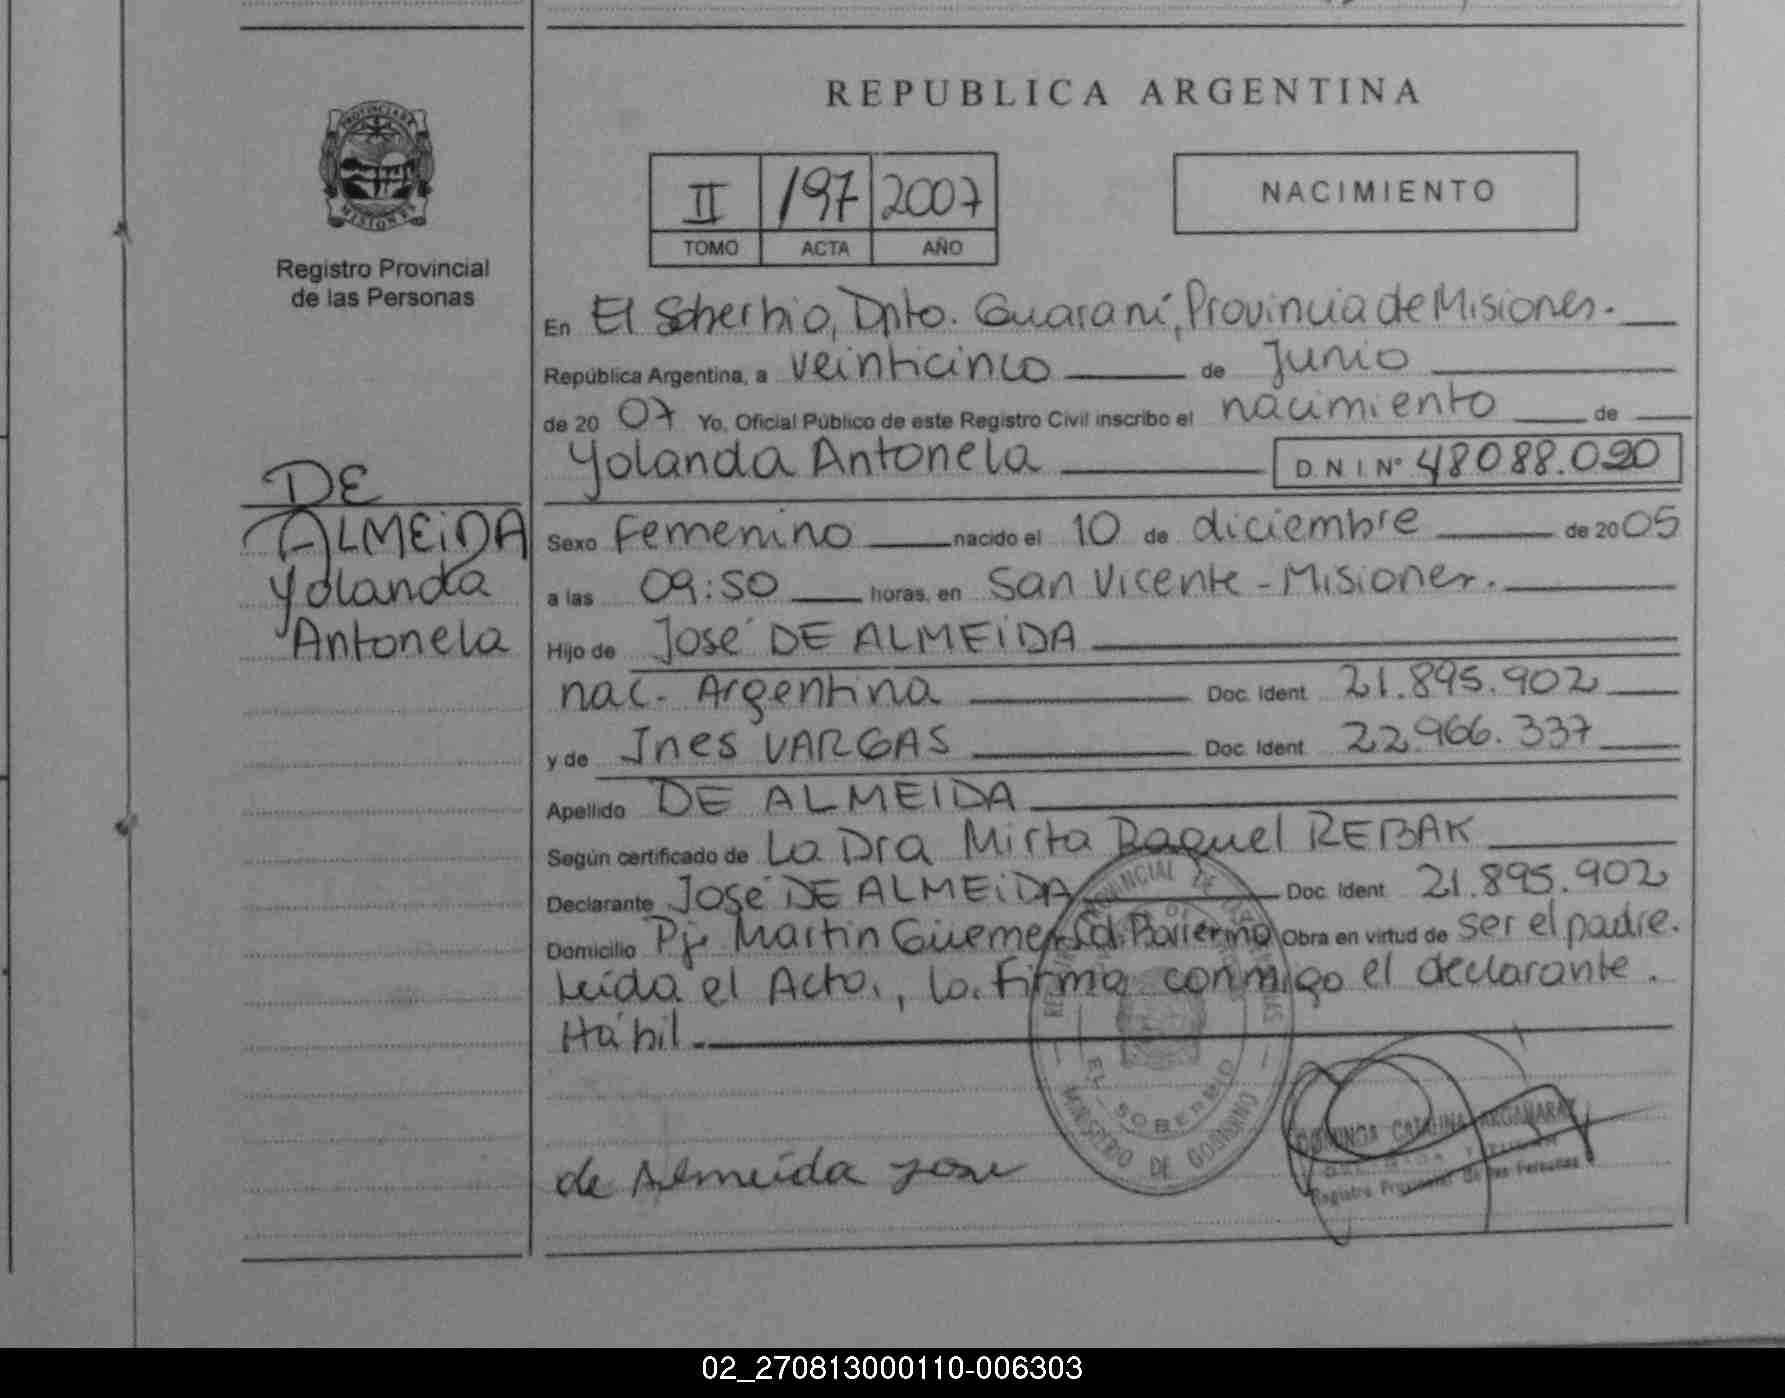 REPUBLICA ARGENTINA
PROVINCIA DE
MISIONES
Registro Provincial
de las Personas
II 197 2007
TOMO ACTA AÑO
NACIMIENTO
En El Soberbio, Dpto. Guaraní, Provincia de Misiones.
República Argentina, a veinticinco de Junio
de 20 07 Yo, Oficial Público de este Registro Civil inscribo el nacimiento de
Yolanda Antonela D.N.I. Nº 48088.020
DE
ALMEIDA
Yolanda
Antonela
Sexo Femenino nacido el 10 de diciembre de 2005
a las 09:50 horas, en San Vicente - Misiones.
Hijo de José DE ALMEIDA
nac. Argentina Doc. Ident. 21.895.902
y de Ines VARGAS Doc. Ident. 22.966.337
Apellido DE ALMEIDA
Según certificado de La Dra Mirta Raquel REBAK
Declarante José DE ALMEIDA Doc. Ident. 21.895.902
Domicilio Pje Martin Güemes Obra en virtud de ser el padre.
Leída el Acta, la firma conmigo el declarante.
Hábil.
PROVINCIAL DE LAS
EL SOBERBIO
MINISTERIO DE GOBIERNO
de Almeida Jose
CATALINA ARGAÑARAZ
Registro Provincial de las Personas
02_270813000110-006303